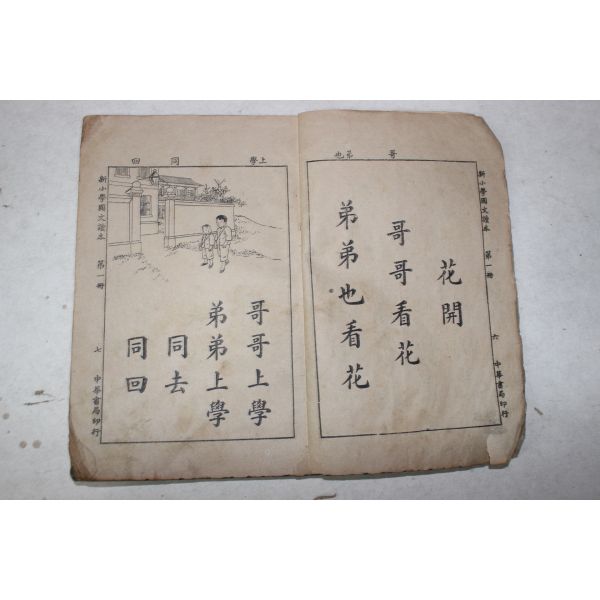 哥 弟 也
花開
哥哥看花
弟弟也看花
新小學國文讀本 第一冊 六 中華書局印行
上學 同 回
哥哥上學
弟弟上學
同去
同回
新小學國文讀本 第一冊 七 中華書局印行